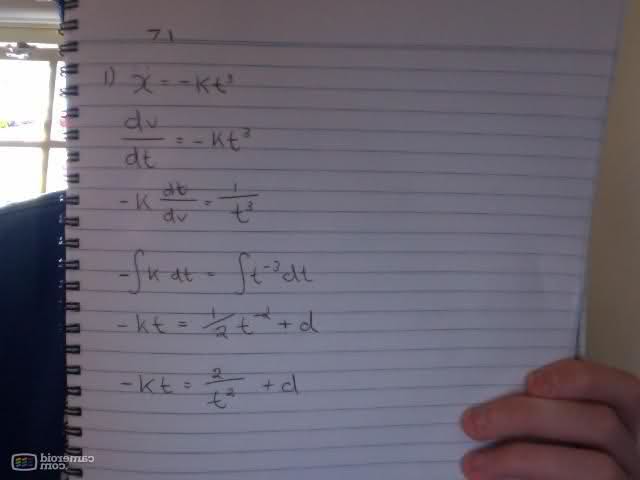 71
1) ẍ = -kt³
dv/dt = -kt³
-k dt/dv = 1/t³
-∫k dt = ∫t⁻³dt
-kt = 1/2 t⁻² + d
-kt = 2/t² + d
cameroid.com